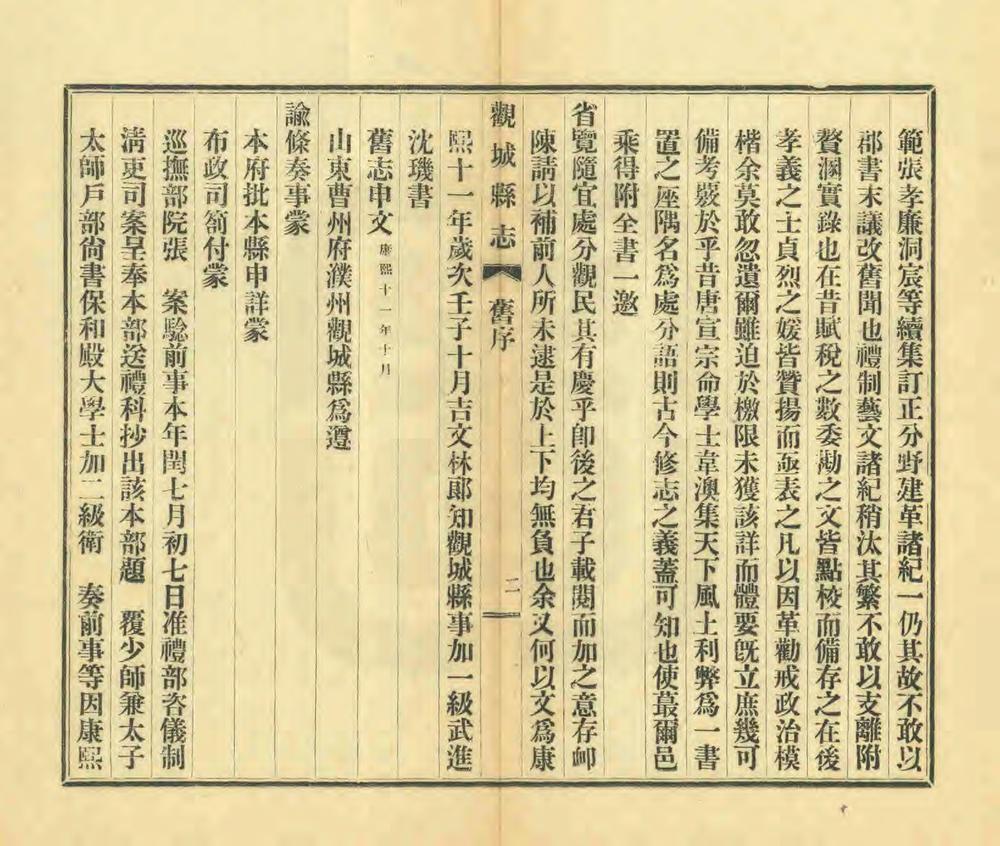 範張孝廉洞宸等續集訂正分野建革諸紀一仍其故不敢以
郡書末議改舊聞也禮制藝文諸紀稍汰其繁不敢以支離附
贅溷實錄也在昔賦稅之數委勘之文皆點檢而備存之在後
孝義之士貞烈之媛皆贊揚而亟表之凡以因革勸戒政治模
楷余莫敢忽遺爾雖迫於檄限未獲該詳而體要旣立庶幾可
備考覈於乎昔唐宣宗命學士韋澳集天下風土利弊爲一書
置之座隅名爲處分語則古今修志之義蓋可知也使蕞爾邑
乘得附全書一邀
省覽隨宜處分觀民其有慶乎卽後之君子載閱而加之意存卹
陳請以補前人所未逮是於上下均無負也余又何以文爲康
觀城縣志 舊序 二
熙十一年歲次壬子十月吉文林郎知觀城縣事加一級武進
沈璣書
舊志申文 康熙十一年十月
山東曹州府濮州觀城縣爲遵
諭條奏事蒙
本府批本縣申詳蒙
布政司劄付蒙
巡撫部院張 案驗前事本年閏七月初七日准禮部咨儀制
淸吏司案呈奉本部送禮科抄出該本部題 覆少師兼太子
太師戶部尙書保和殿大學士加二級衛 奏前事等因康熙